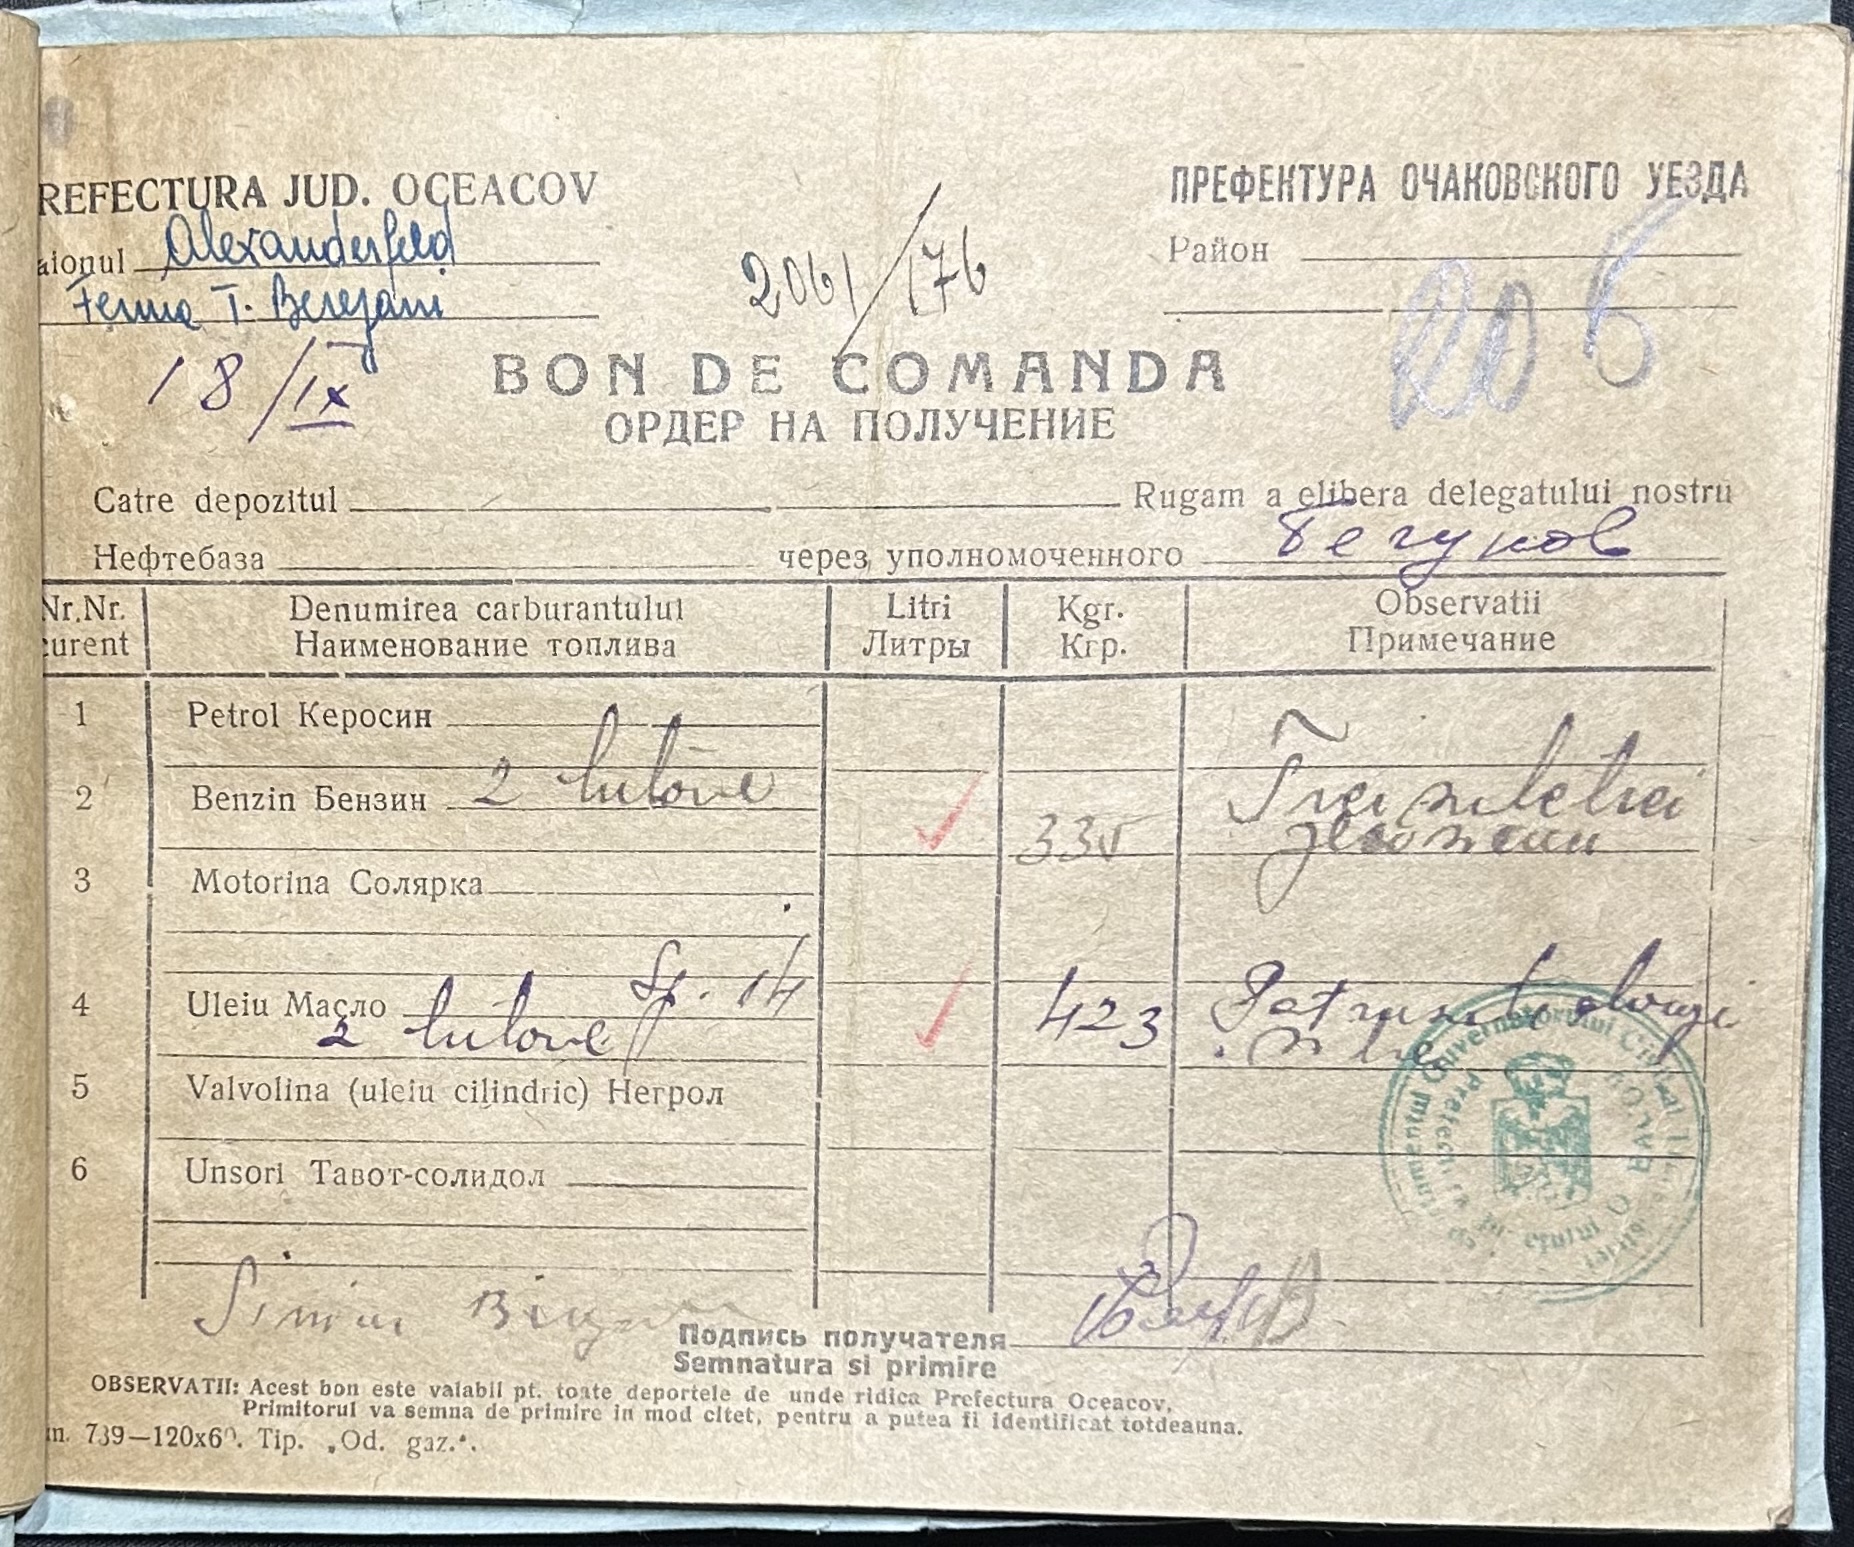 REFECTURA JUD. OCEACOV
ПРЕФЕКТУРА ОЧАКОВСКОГО УЕЗДА
aionul Alexanderfeld
Район
Ferma T. Berezani
2061/176
206
18/IX
BON DE COMANDA
ОРДЕР НА ПОЛУЧЕНИЕ
Catre depozitul Rugam a elibera delegatului nostru
Нефтебаза через уполномоченного Бегунов
Nr.Nr. Denumirea carburantului Litri Kgr. Observatii
curent Наименование топлива Литры Кгр. Примечание
1 Petrol Керосин
2 Benzin Бензин 2 butoae 335 Trei sute trei
3 Motorina Солярка
4 Uleiu Масло 423 Patru sute douazeci
2 butoae
5 Valvolina (uleiu cilindric) Негрол
6 Unsori Тавот-солидол
Подпись получателя
Semnatura si primire
OBSERVATII: Acest bon este valabil pt. toate deportele de unde ridica Prefectura Oceacov.
Primitorul va semna de primire in mod citet, pentru a putea fi identificat totdeauna.
m. 739—120x60. Tip. „Od. gaz.".